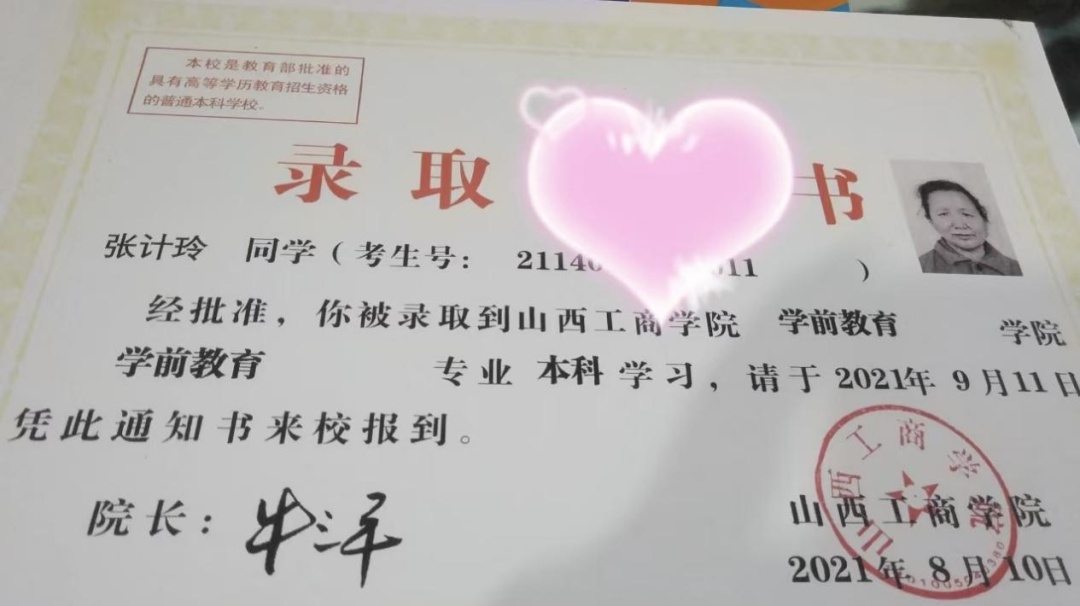 本校是教育部批准的
具有高等学历教育招生资格
的普通本科学校。
录取 书
张计玲 同学（考生号： 21140 011 ）
经批准，你被录取到山西工商学院 学前教育 学院
学前教育 专业 本科 学习，请于 2021年 9月11日
凭此通知书来校报到。
院长：牛三平
山西工商学院
山西工商学院
2021年 8月10日